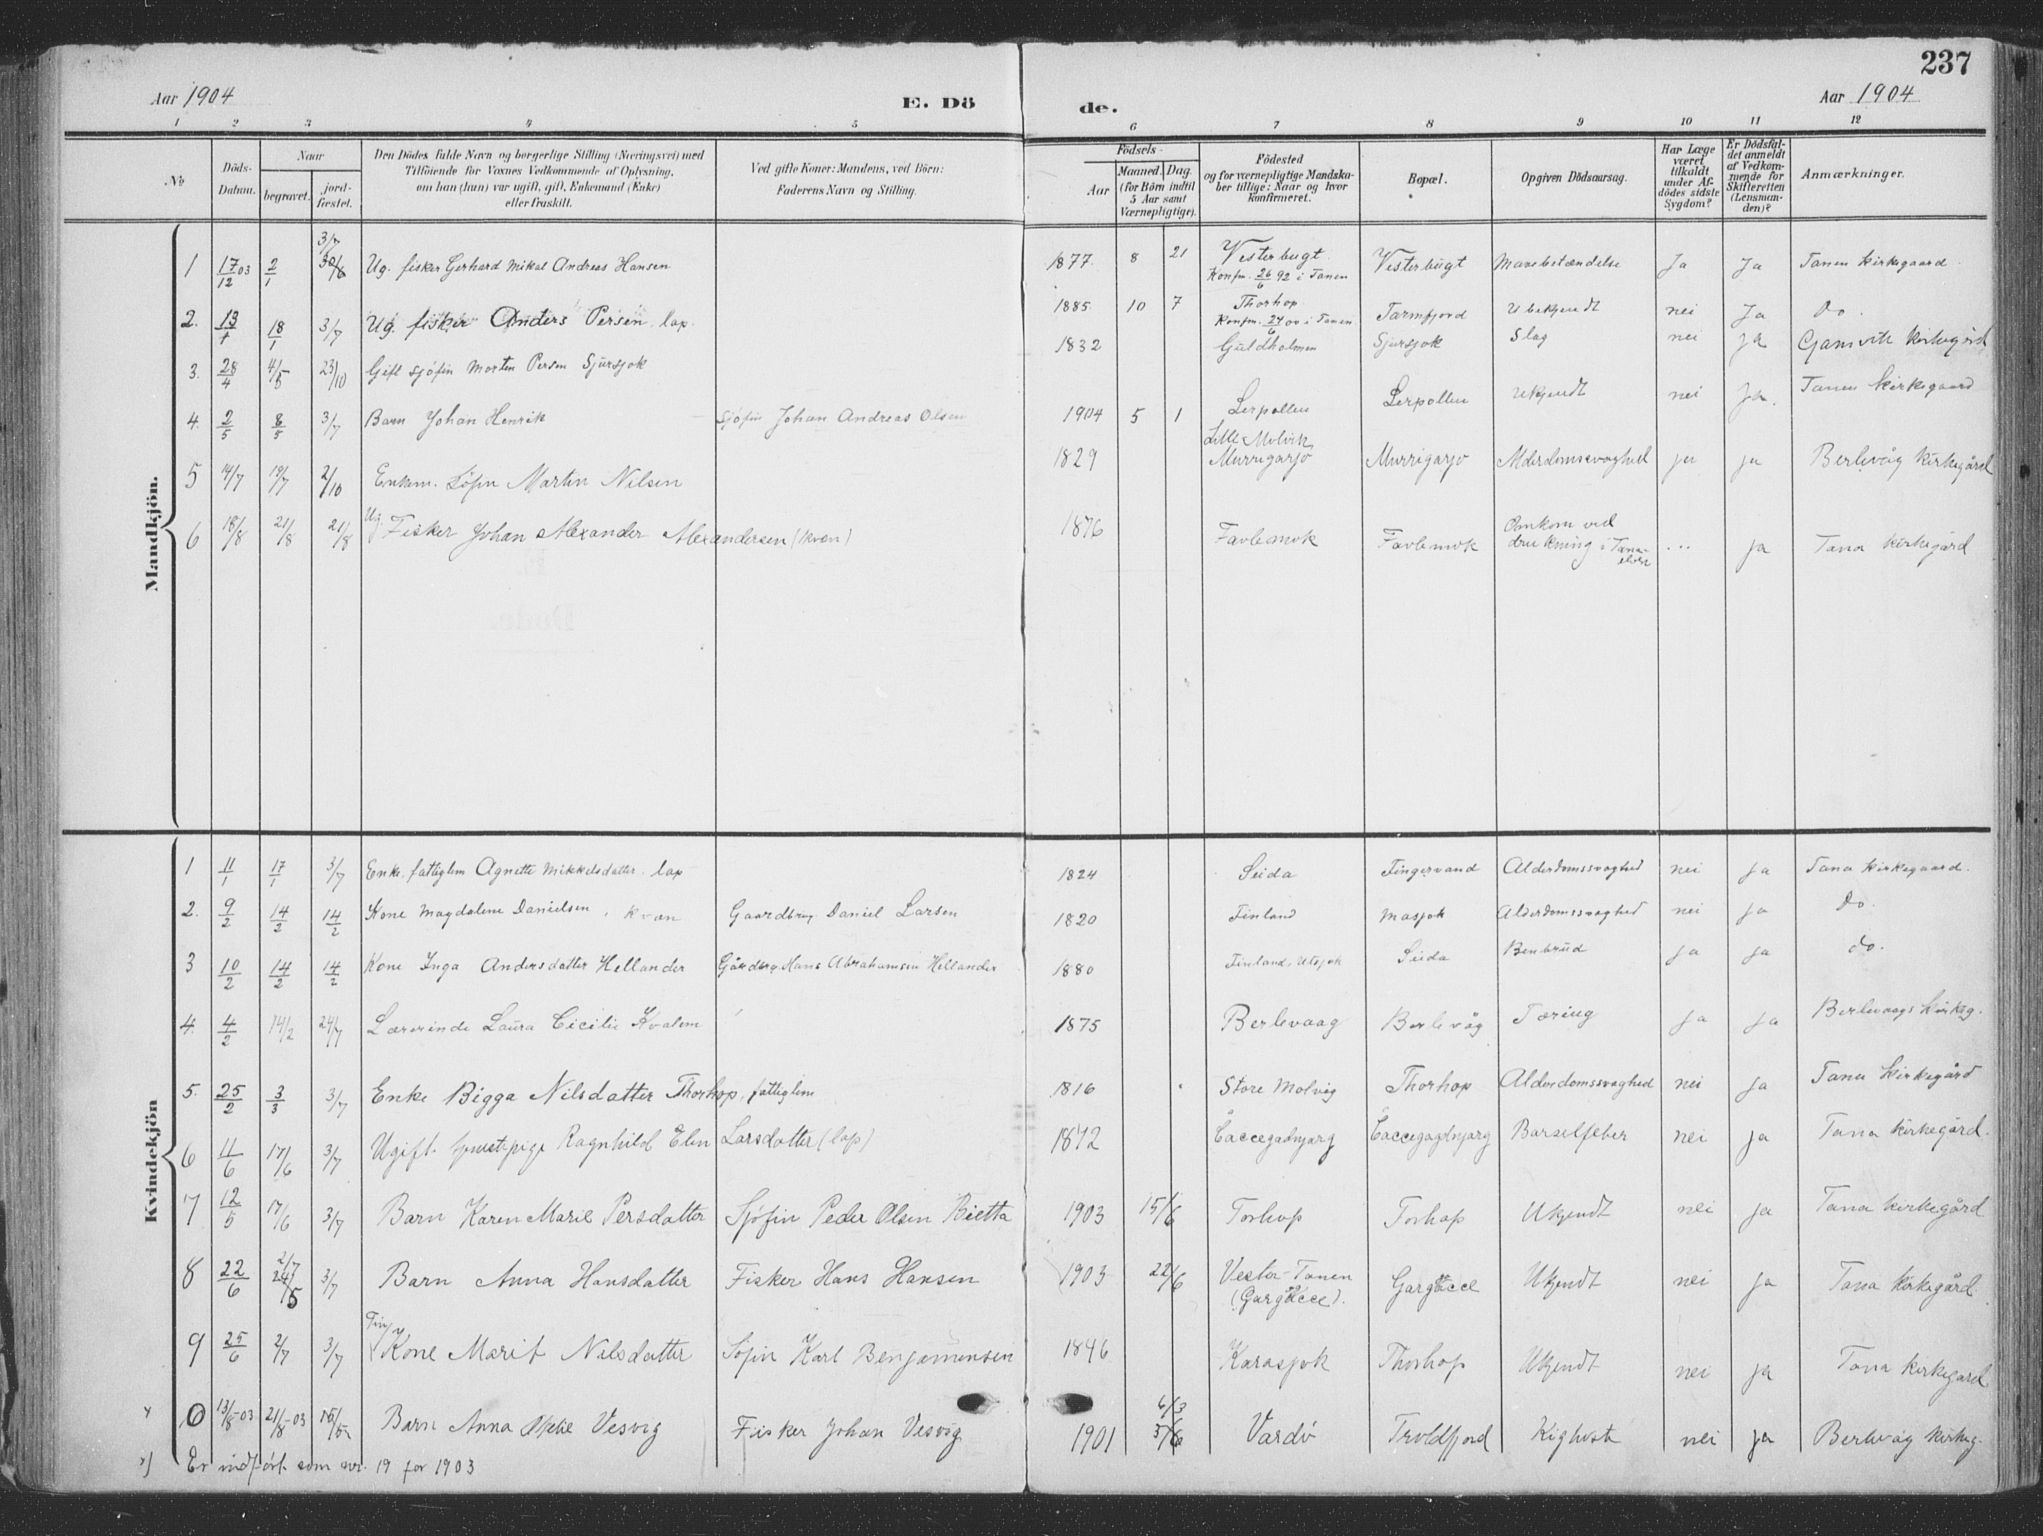 237
Aar 1904 E. Dö de. Aar 1904
1 2 3 4 5 6 7 8 9 10 11 12
No. Döds-Datum. Naar begravet. jordfæstet. Den Dödes fulde Navn og borgerlige Stilling (Næringsvei) med Tilföiende for Voxnes Vedkommende af Oplysning, om han (hun) var ugift, gift, Enkemand (Enke) eller fraskilt. Ved gifte Koner: Mandens, ved Börn: Faderens Navn og Stilling. Födsels- Aar Maaned. Dag. (for Börn indtil 5 Aar samt Værnepligtige). Födested og for værnepligtige Mandskaber tillige: Naar og hvor konfirmeret. Bopæl. Opgiven Dödsaarsag. Har Læge været tilkaldt under Afdödes sidste Sygdom? Er Dödsfaldet anmeldt af Vedkommende for Skifteretten (Lensmanden)? Anmærkninger.
Mandkjön.
1 17/12 03 2/1 3/7 30/6 Ug. fisker Gerhard Mikal Andreas Hansen 1877 8 21 Vesterbugt Konfm. 26/6 92 i Tanen Vesterbugt Mavebetændelse Ja Ja Tanen Kirkegaard.
2. 13/1 18/1 3/7 Ug. fisker Anders Persen. lap. 1885 10 7 Thorhop Konfm. 24/6 00 i Tanen Tarmfjord Ubekjendt nei Ja Do.
3. 28/4 4/5 23/10 Gift sjøfin Morten Persen Sjursjok 1832 Guldholmen Sjursjok Slag nei ja Gamvik Kirkegård
4. 2/5 8/5 3/7 Barn Johan Henrik Sjøfin Johan Andreas Olsen 1904 5 1 Lerpollen Lerpollen Ukjendt nei Ja. Tanen Kirkegaard
5 14/7 19/7 2/10 Enkem. Søfin Martin Nilsen 1829 Lille Molvik Murrigarjo Murrigarjo Alderdomssvaghed ja ja Berlevåg Kirkegård
6 18/8 21/8 21/8 Ug. Fisker Johan Alexander Alexandersen (kvæn) 1876 Favlemok Favlemok Omkom ved drukning i Tanaelven ... ja Tana Kirkegård
Kvindekjön
1 11/1 17/1 3/7 Enke. fattiglem Agnette Mikkelsdatter. lap 1824 Seida Fingervand Alderdomssvaghed nei ja Tana Kirkegaard.
2. 9/2 14/2 14/2 Kone Magdalene Danielsen, kvæn Gaardbrug. Daniel Larsen 1820 Finland Masjok Alderdomssvaghed nei ja Do.
3 10/2 14/2 14/2 Kone Inga Andersdatter Hellander Gårdbrg. Hans Abrahamsen Hellander 1880 Finland, Utsjok Seida Benbrud ja ja do.
4. 4/2 14/2 24/7 Lærerinde Laura Cicilie Kvalem 1875 Berlevaag Berlevåg Tæring Ja Ja Berlevaags Kirkeg.
5. 25/2 3/3 3/7 Enke Bigga Nilsdatter Thorhop, fattiglem 1816 Store Molvig Thorhop Alderdomssvaghed nei ja Tana Kirkegård
6 11/6 17/6 3/7 Ugift pige Ragnhild Elen Larsdatter (lap) 1872 Čaccegadnjarg Čaccegagdnjarg Barselfeber nei ja Tana Kirkegård.
7 12/5 17/6 3/7 Barn Karen Marie Persdatter Sjøfin Peder Olsen Bietta 1903 15/6 Torhop Torhop Ukjendt nei ja Tana Kirkegård
8 22/6 2/7 24/5 3/7 Barn Anna Hansdatter Fisker Hans Hansen 1903 22/6 Vester-Tanen (Gargočce). Gargočce Ukjendt nei ja Tana Kirkegård
9 25/6 2/7 3/7 Fin Kone Marit Nilsdatter Søfin Karl Benjaminsen 1846 Karasjok Thorhop Ukjendt nei ja Tana Kirkegård
10 13/8-03 21/8-03 15/5 Barn Anna Vesvig Fisker Johan Vesvig 1901 6/3 Vardö Troldfjord Kighoste nei ja Berlevåg Kirkeg.
x) Er indført som nr. 19 for 1903